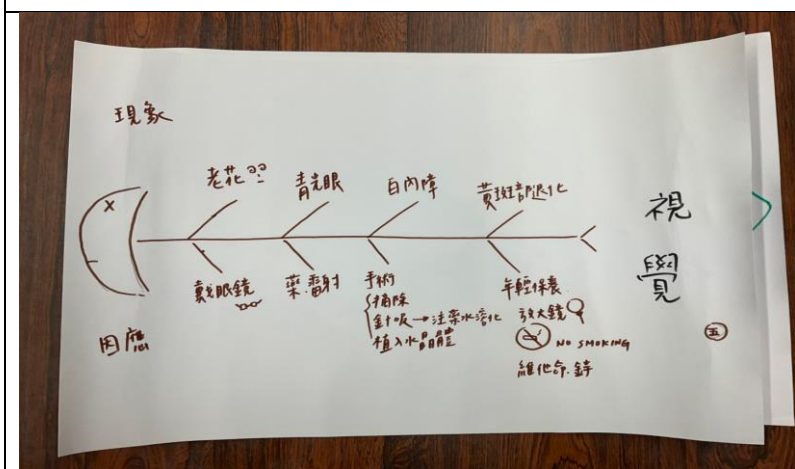 現象
老花
青光眼
白內障
黃斑部退化
視覺
戴眼鏡
藥.雷射
手術
摘除
針吸→注藥水溶化
植入水晶體
年輕保養
放大鏡
NO SMOKING
維他命.鋅
因應
五